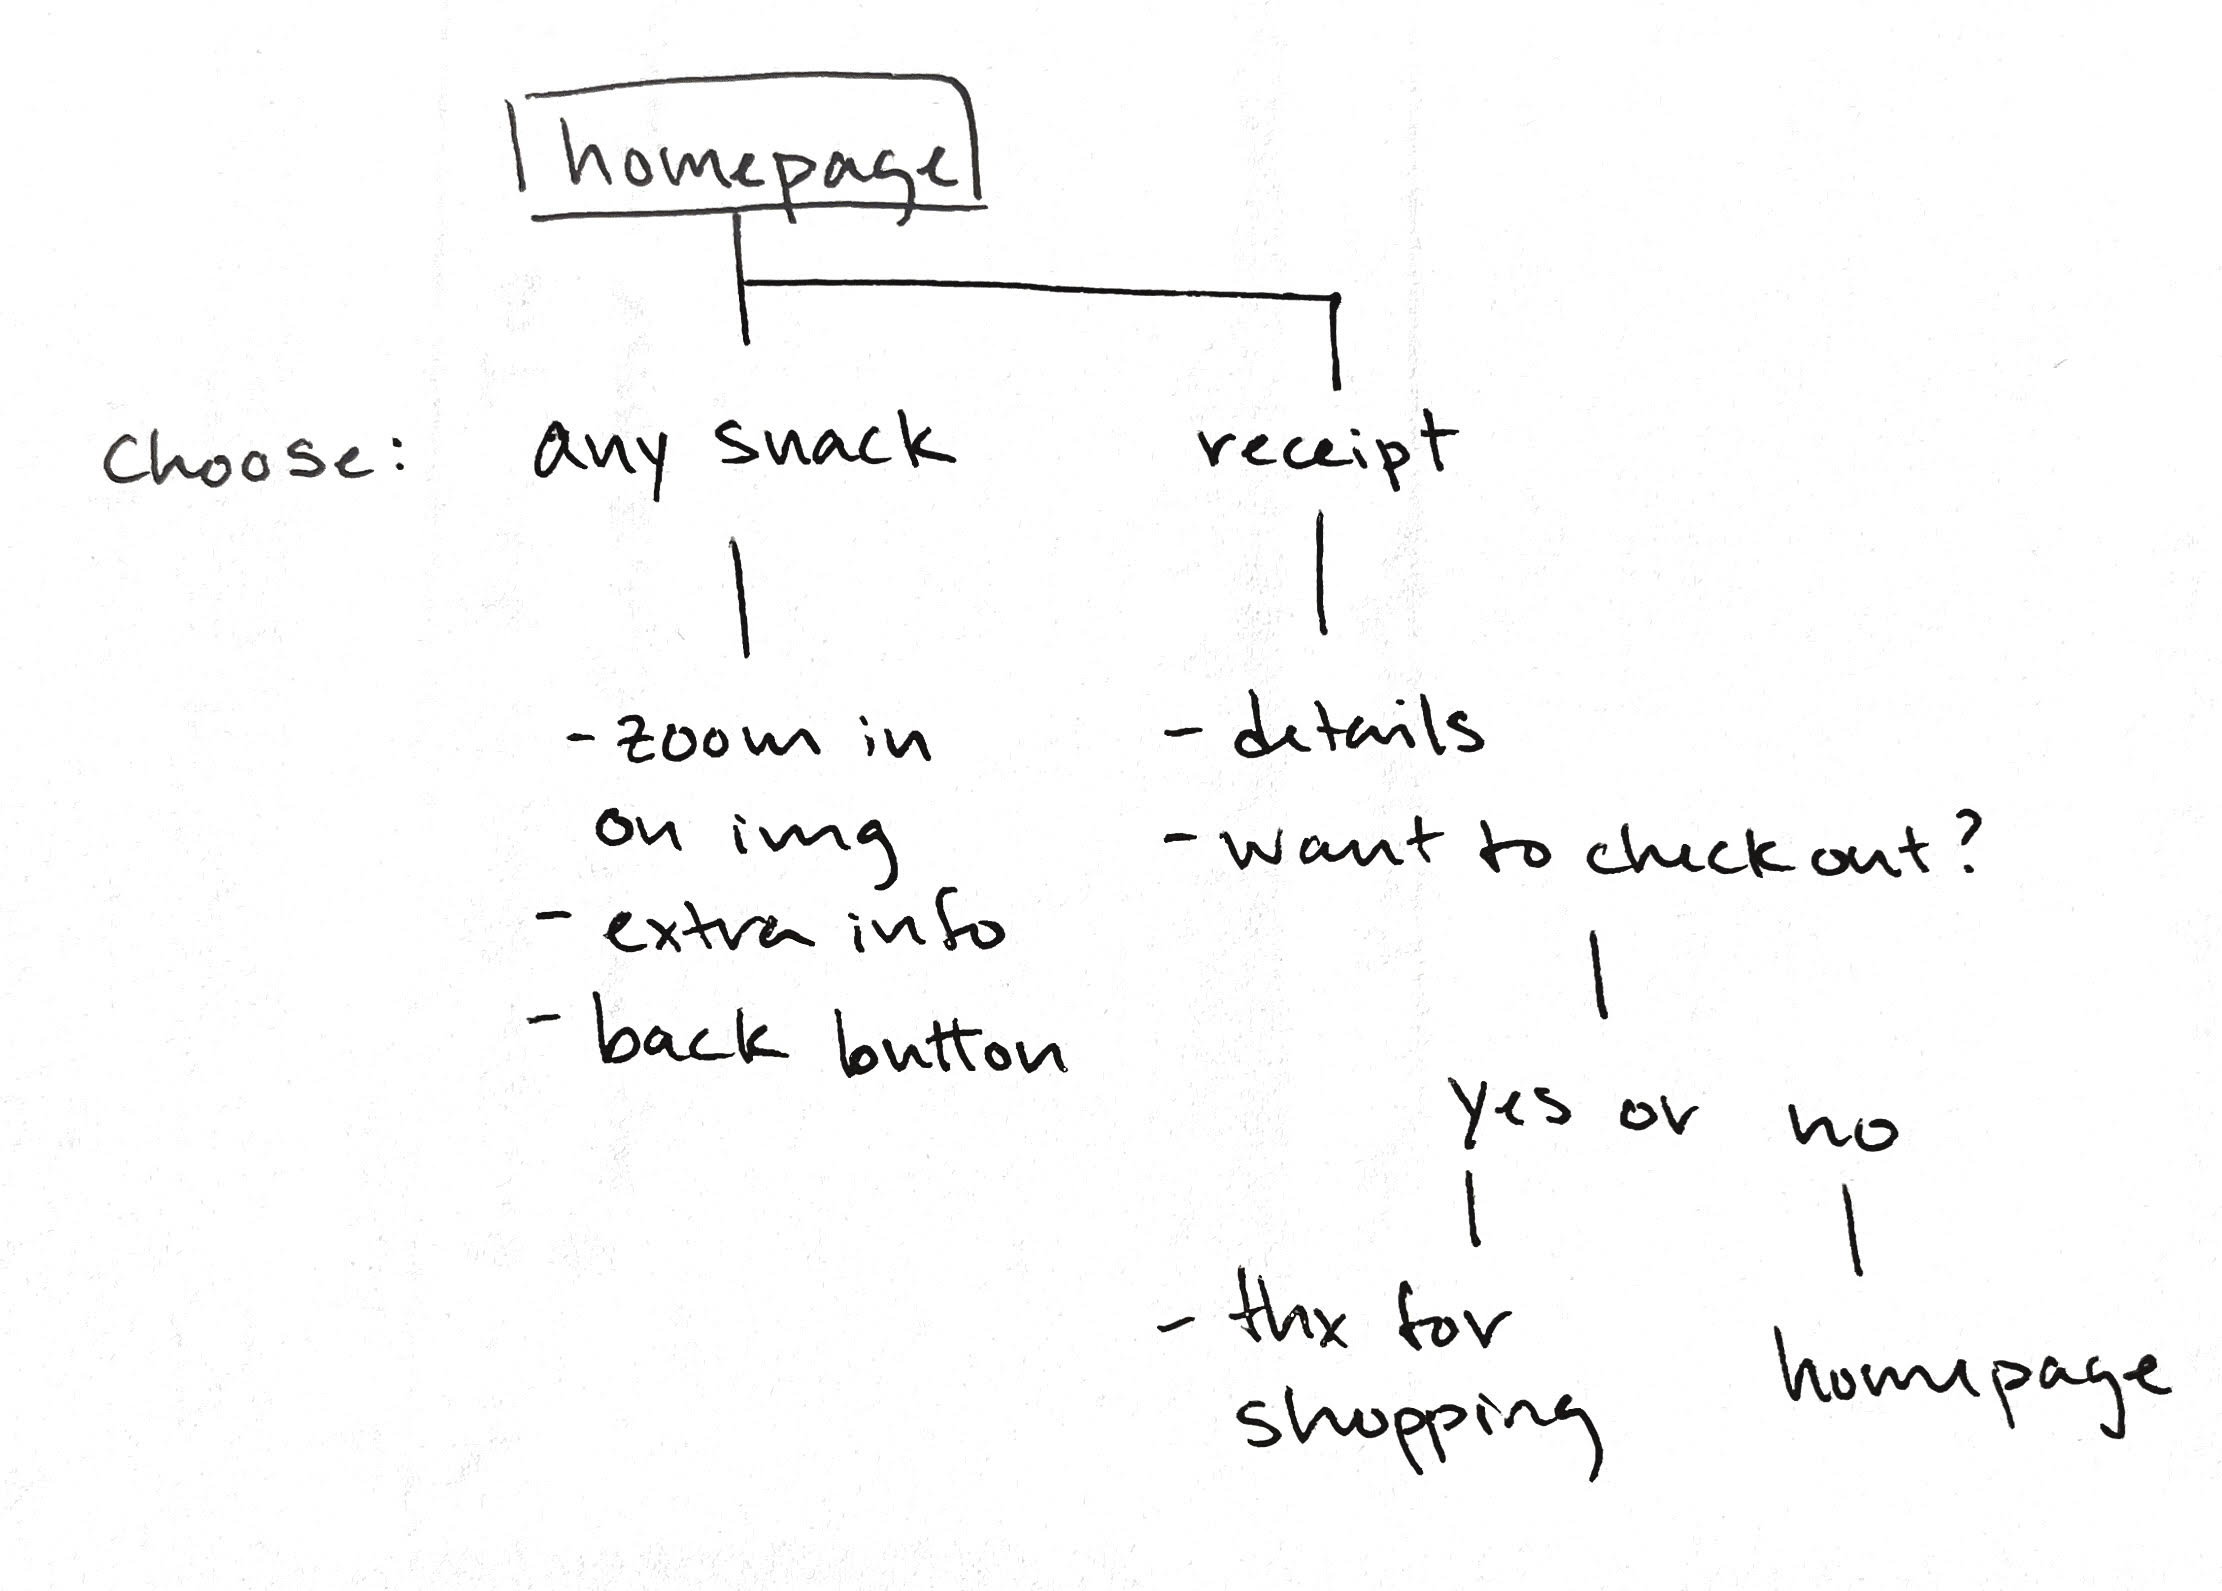 homepage
Choose: any snack receipt
- zoom in
on img
- extra info
- back button
- details
- want to check out?
yes or no
- thx for
shopping
homepage